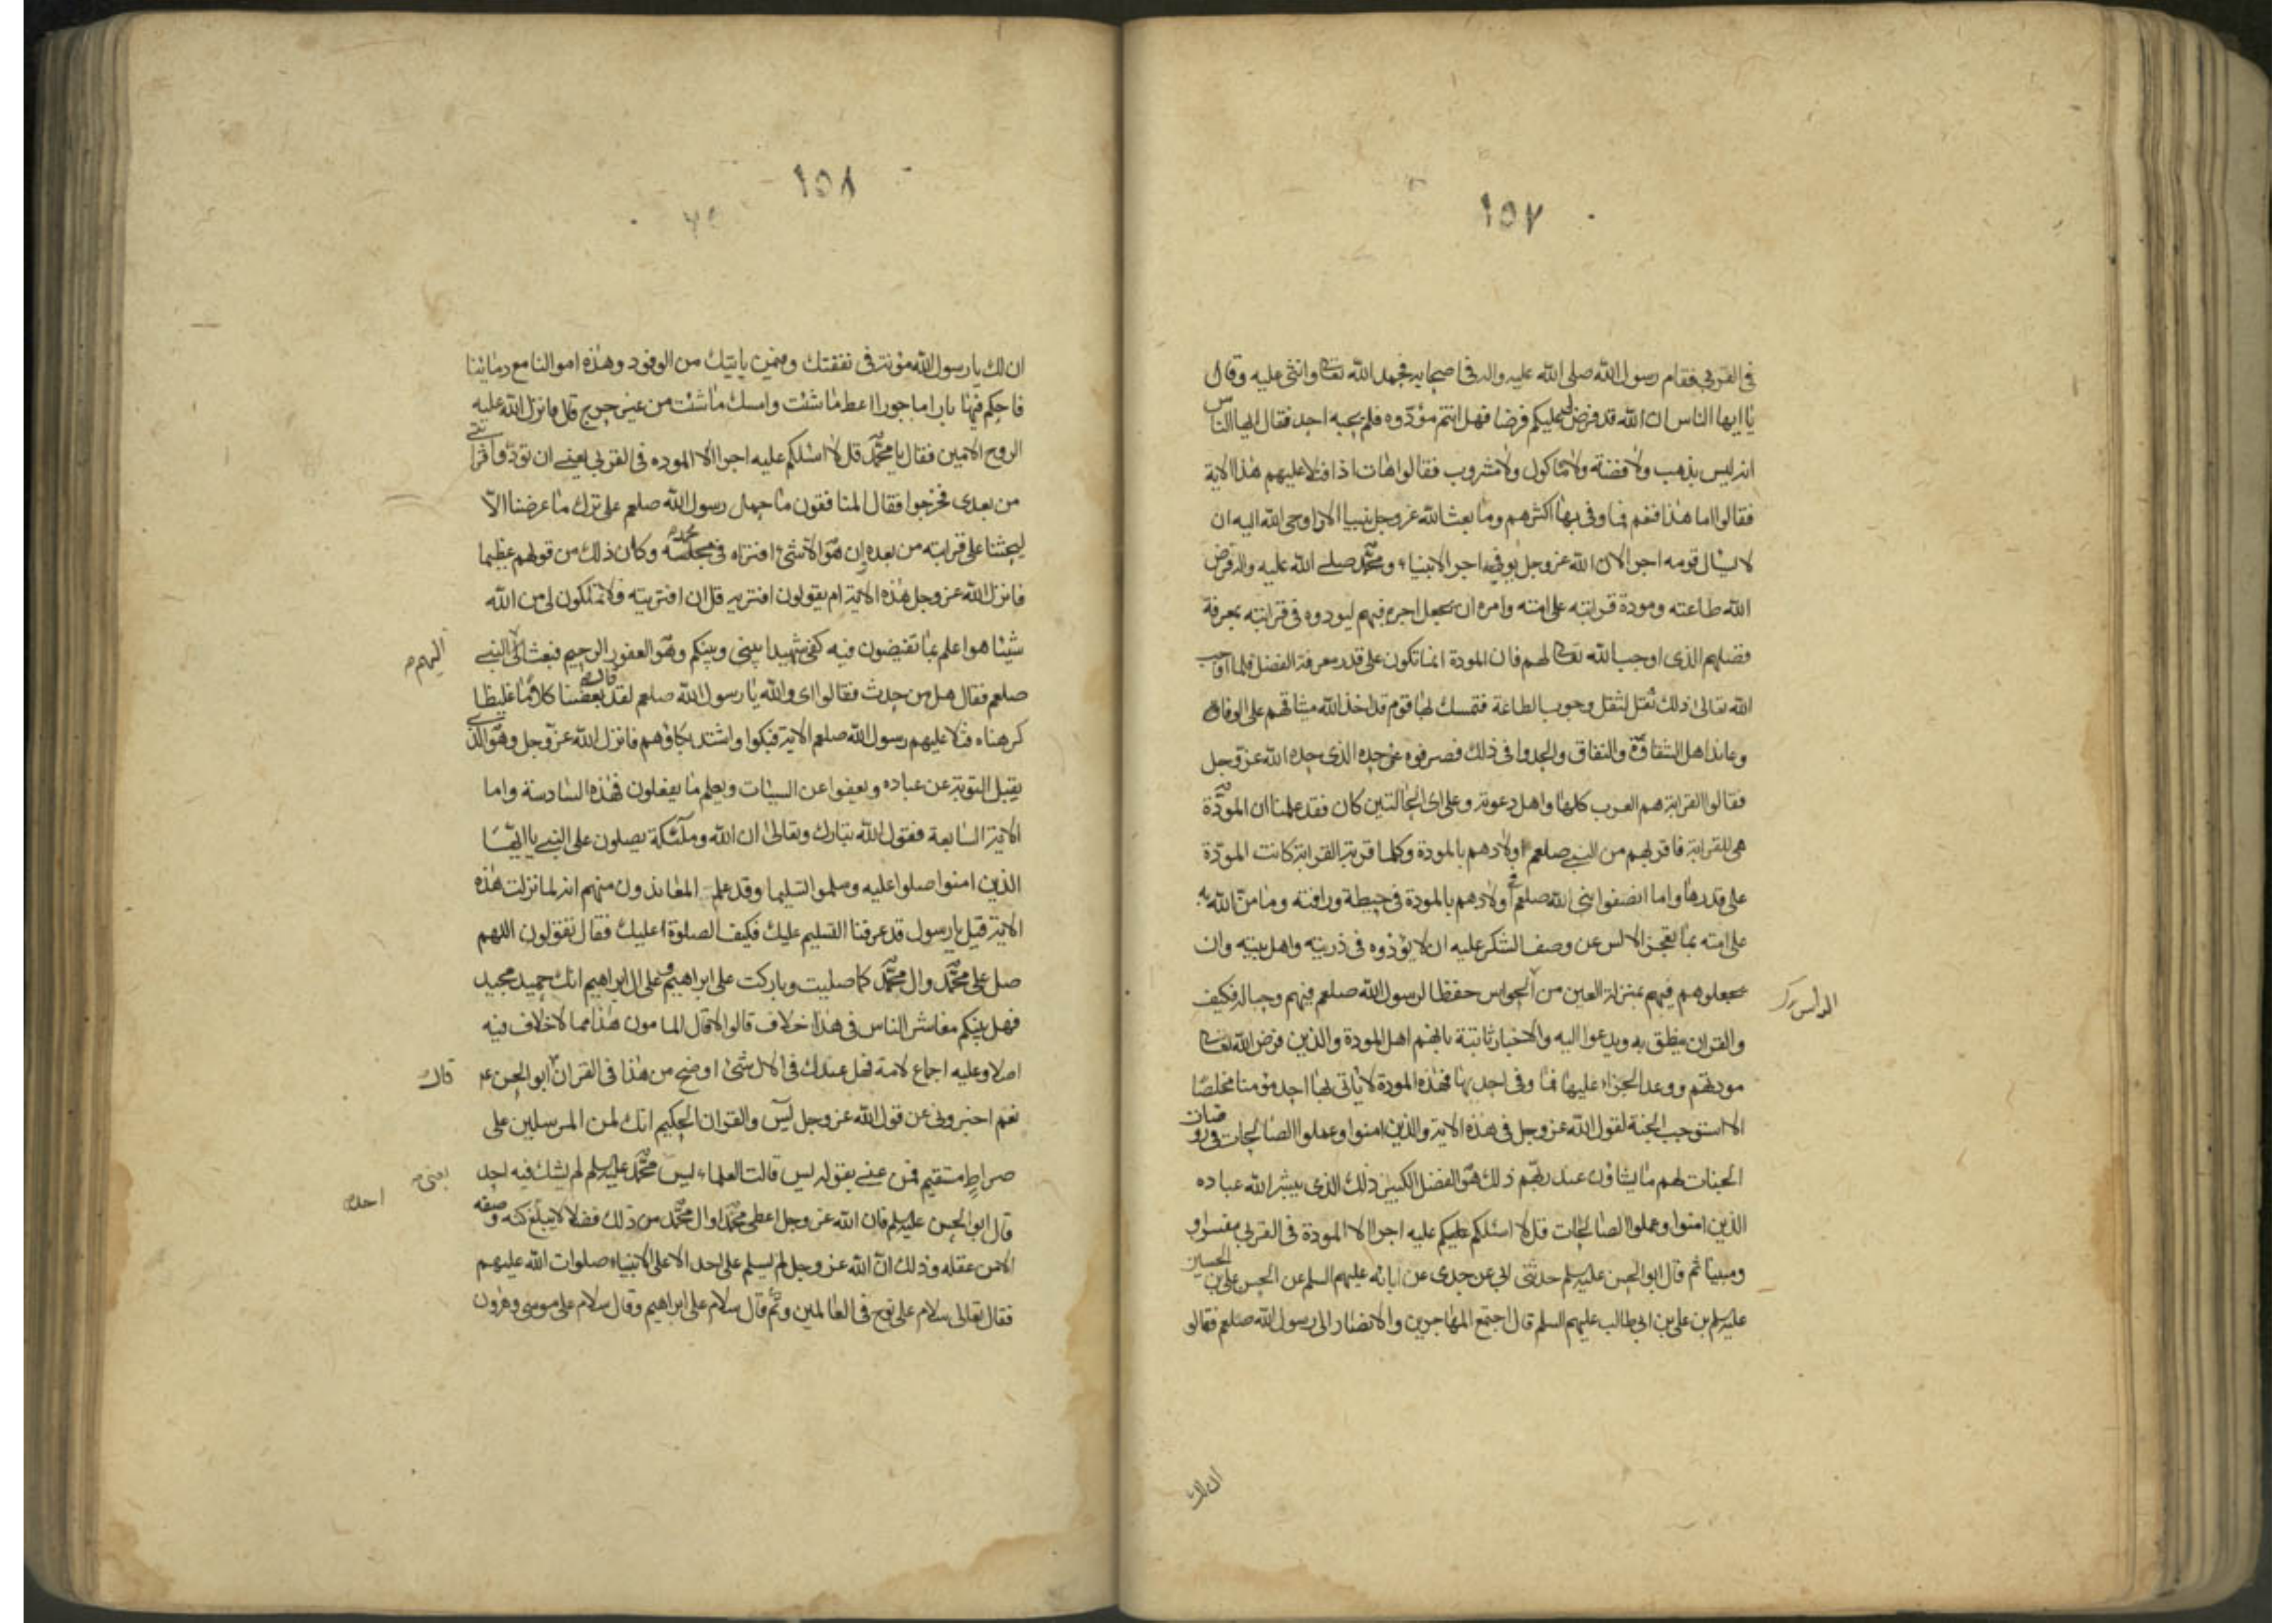 ١٥٧
في القربى فقام رسول الله صلى الله عليه واله في اصحابه فحمد الله تعالى واثنى عليه وقال
يا ايها الناس ان الله قد فرض لي عليكم فرضا فهل انتم مؤدّوه فلم يجبه احد فقال ايها الناس
انه ليس بذهب ولا فضة ولا مأكول ولا مشروب فقالوا هات اذا فتلا عليهم هذا الاية
فقالوا اما هذا فنعم فما وفى بها اكثرهم وما بعث الله عز وجل نبيا الا اوحى الله اليه ان
لا يسال قومه اجرا لان الله عز وجل يوفيه اجر الانبياء ومحمّد صلى الله عليه واله فرض
الله طاعته ومودة قرابته على امته وامره ان يجعل اجره فيهم ليودوه في قرابته بمعرفة
فضلهم الذى اوجب الله تعالى لهم فان المودة انما تكون على قدر معرفة الفضل فلما اوجب
الله تعالى ذلك ثقل لثقل وجوب الطاعة فتمسك لها قوم قد اخذ الله ميثاقهم على الوفاق
وعاند اهل الشقاوة والنفاق والحدوا في ذلك فصرفوه عن حده الذى حده الله عز وجل
فقالوا القرابة هم العرب كلها واهل دعوته وعلى اى الحالتين كان فقد علمنا ان المودّة
هى للقرابة فاقربهم من النبي صلعم اولادهم بالمودة وكلما قربة القرابة كانت المودّة
على قدرها واما انصفوا نبى الله صلعم اولادهم بالمودة في حيطة ورافته وما من الله به
على امته بما تعجز الالس عن وصف الشكر عليه ان لا يؤذوه في ذريته واهل بيته وان
يجعلوهم فيهم بمنزلة العين من الحواس حفظا لرسول الله صلعم فيهم وحبا له فكيف
والقران ينطق به ويدعوا اليه والاخبار ثابتة بانهم اهل المودة والذين فرض الله تعالى
مودتهم ووعد الجزاء عليها فما وفى احد بها فهذه المودة لا ياتى بها احد مؤمنا مخلصا
الا استوجب الجنة لقول الله عز وجل في هذه الاية والذين امنوا وعملوا الصالحات في روضات
الجنات لهم ما يشاؤن عند ربهم ذلك هو الفضل الكبير ذلك الذى يبشر الله عباده
الذين امنوا وعملوا الصالحات قل لا اسئلكم عليكم عليه اجرا الا المودة في القربى مفسرا و
ومبينا ثم قال ابو الحسن عليه السلم حدثنى ابى عن جدى عن ابائه عليهم السلم عن الحسن على بن الحسين
عليه السلم بن على بن ابى طالب عليهم السلم قال اجتمع المهاجرين والانصار الى رسول الله صلعم فقالو
ان لك
١٥٨
ان لك يا رسول الله مؤنة في نفقتك وفيمن ياتيك من الوفود وهذه اموالنا مع دمائنا
فاحكم فيها بارا ماجورا اعط ما شئت وامسك ما شئت من غير حرج قال فانزل الله عليه
الروح الامين فقال يا محمّد قل لا اسئلكم عليه اجرا الا الموده في القربى يعنى ان تودّوا قرابتى
من بعدى فخرجوا فقال المنافقون ما حمل رسول الله صلعم على ترك ما عرضنا الّا
ليحثنا على قرابته من بعده ان هو الا شئ افتراه في مجلسه محمد وكان ذلك من قولهم عظيما
فانزل الله عز وجل هذه الاية ام يقولون افتريه قل ان افتريته فلا تملكون لى من الله
شيئا هو اعلم بما تفيضون فيه كفى شهيدا بينى وبينكم وهو الغفور الرحيم فبعث الى النبي
اليهم
صلعم فقال هل من حدث فقالوا اى والله يا رسول الله صلعم لقد قال بعضنا كلاما غليظا
كرهناه فتلا عليهم رسول الله صلعم الاية فبكوا واشتد بكاؤهم فانزل الله عز وجل وهو الذى
يقبل التوبة عن عباده ويعفوا عن السيئات ويعلم ما يفعلون فهذه السادسة واما
الاية السابعة فقول الله تبارك وتعالى ان الله وملئكة يصلون على النبي يا ايها
الذين امنوا صلوا عليه وسلموا تسليما وقد علم المعاندون منهم انه لما نزلت هذه
الاية قيل يا رسول قد عرفنا التسليم عليك فكيف الصلوة عليك فقال تقولون اللهم
صل على محمّد وال محمّد كما صليت وباركت على ابراهيم وعلى ال ابراهيم انك حميد مجيد
فهل بينكم معاشر الناس في هذا خلاف قالوا لا قال المامون هذا مما لا خلاف فيه
اصلا وعليه اجماع لامة فهل عندك في الال شئ اوضح من هذا في القران ابو الحسن ع
قال
نعم اخبرونى عن قول الله عز وجل يس والقران الحكيم انك لمن المرسلين على
صراط مستقيم فمن عنى بقوله يس قالت العلماء يس محمّد عليه السلم لم يشك فيه احد
يعنى
احدا
قال ابو الحسن عليه السلم فان الله عز وجل اعطى محمّدا وال محمّد من ذلك فضلا لا يبلغ كنه وصفه
الا من عقله وذلك انّ الله عز وجل لم يسلم على احد الا على الانبياء صلوات الله عليهم
فقال تعالى سلام على نوح في العالمين وثم قال سلام على ابراهيم وقال سلام على موسى وهرون